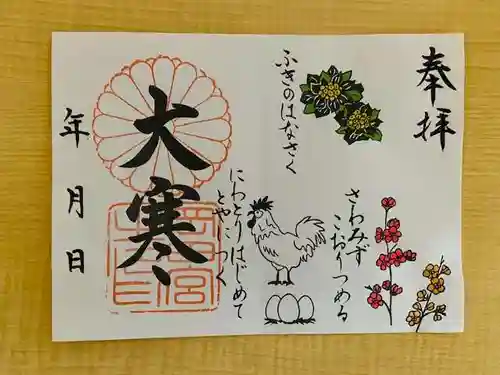 奉拝
ふきのはなさく
さわみず
こおりつめる
にわとりはじめて
とやにつく
大寒
年月日